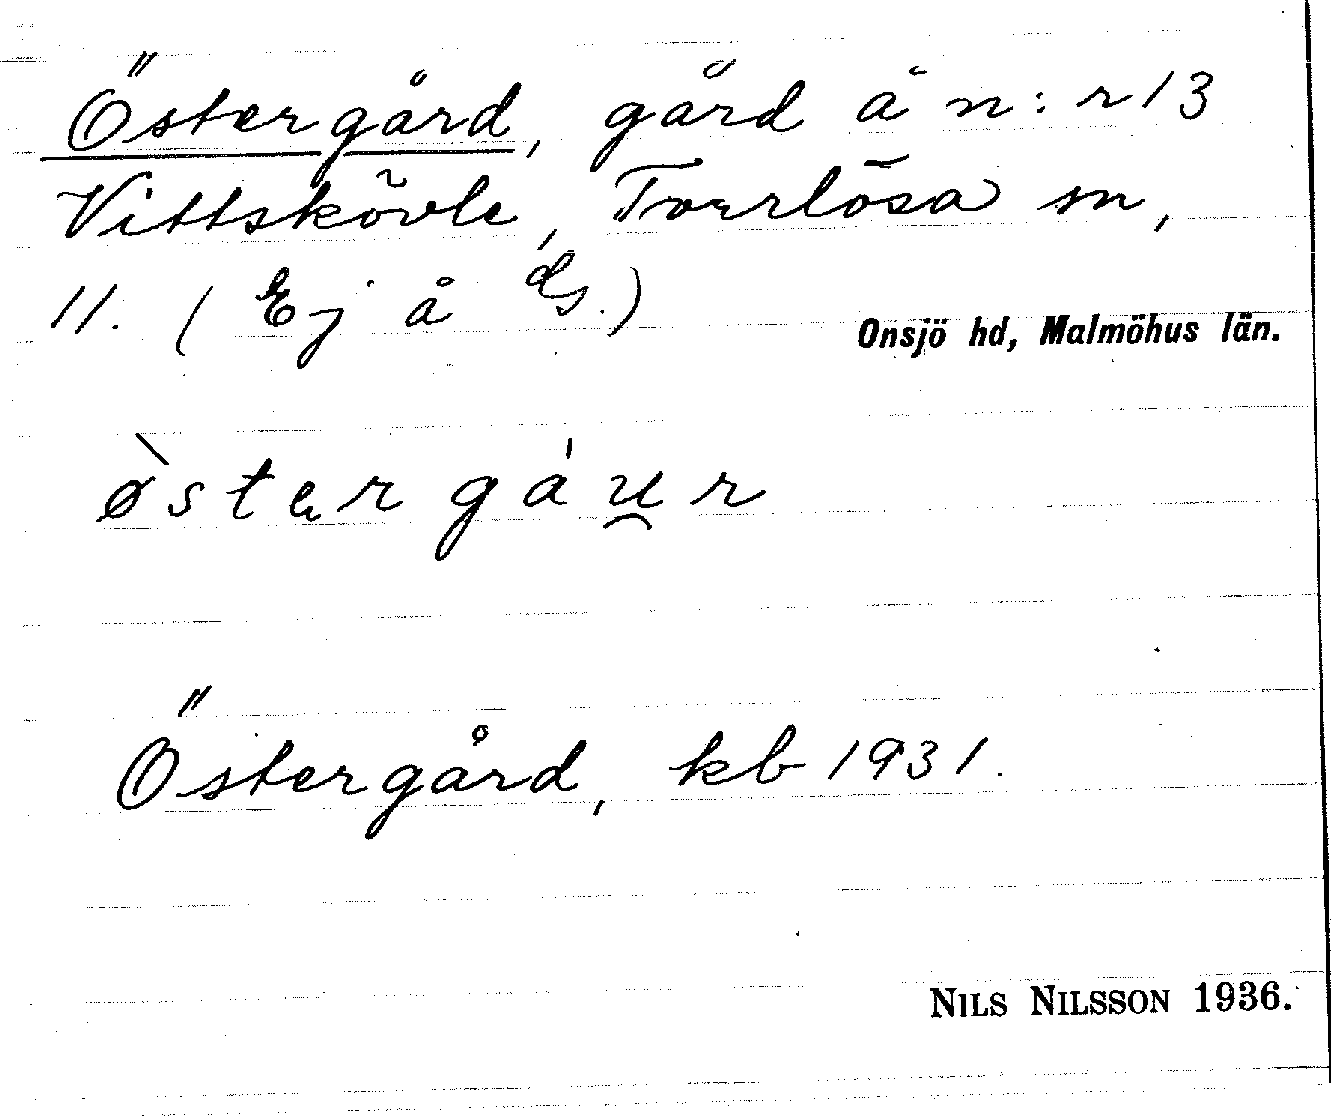 Östergård, gård å n:r 13
Vittskövle, Torrlösa sn,
11. (Ej å ds.)
Onsjö hd, Malmöhus län.
ø̀stər gáu̯r
Östergård, kb 1931.
NILS NILSSON 1936.